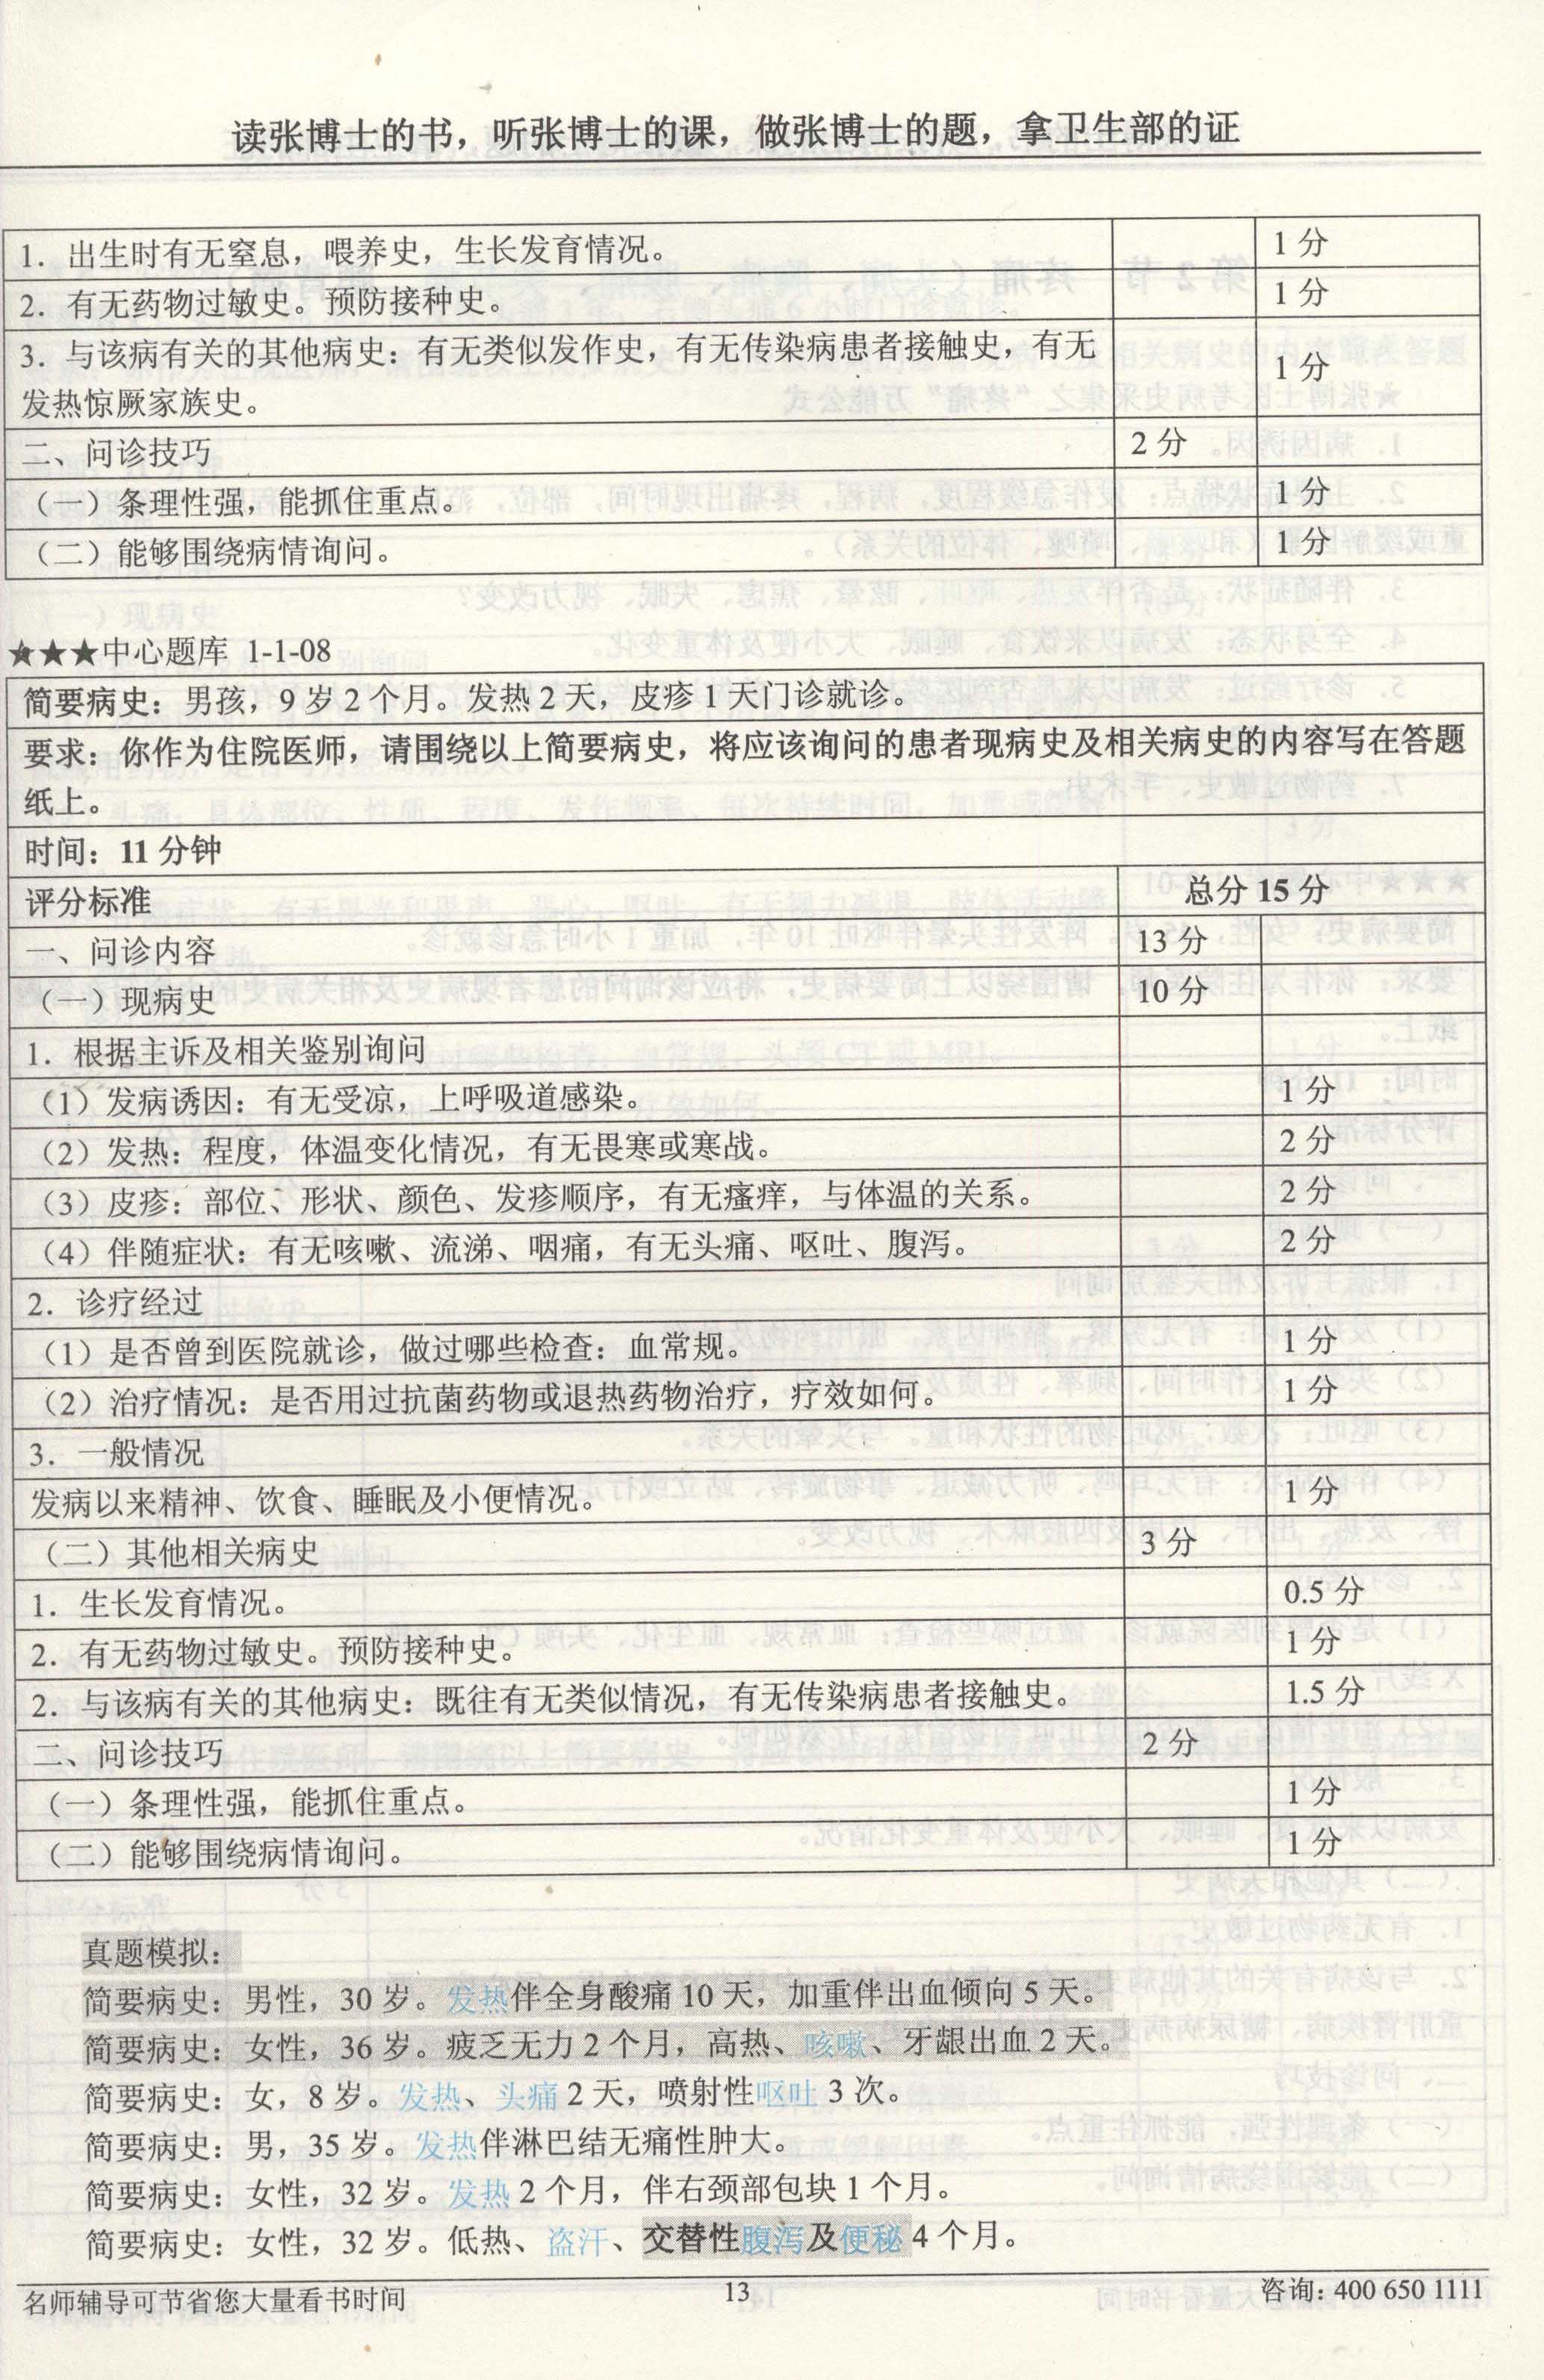 读张博士的书，听张博士的课，做张博士的题，拿卫生部的证
1．出生时有无窒息，喂养史，生长发育情况。 1 分
2．有无药物过敏史。预防接种史。 1 分
3．与该病有关的其他病史：有无类似发作史，有无传染病患者接触史，有无
发热惊厥家族史。 1 分
二、问诊技巧 2 分
（一）条理性强，能抓住重点。 1 分
（二）能够围绕病情询问。 1 分
★★★中心题库 1-1-08
简要病史：男孩，9 岁 2 个月。发热 2 天，皮疹 1 天门诊就诊。
要求：你作为住院医师，请围绕以上简要病史，将应该询问的患者现病史及相关病史的内容写在答题
纸上。
时间：11 分钟
评分标准 总分 15 分
一、问诊内容 13 分
（一）现病史 10 分
1．根据主诉及相关鉴别询问
（1）发病诱因：有无受凉，上呼吸道感染。 1 分
（2）发热：程度，体温变化情况，有无畏寒或寒战。 2 分
（3）皮疹：部位、形状、颜色、发疹顺序，有无瘙痒，与体温的关系。 2 分
（4）伴随症状：有无咳嗽、流涕、咽痛，有无头痛、呕吐、腹泻。 2 分
2．诊疗经过
（1）是否曾到医院就诊，做过哪些检查：血常规。 1 分
（2）治疗情况：是否用过抗菌药物或退热药物治疗，疗效如何。 1 分
3．一般情况
发病以来精神、饮食、睡眠及小便情况。 1 分
（二）其他相关病史 3 分
1．生长发育情况。 0.5 分
2．有无药物过敏史。预防接种史。 1 分
2．与该病有关的其他病史：既往有无类似情况，有无传染病患者接触史。 1.5 分
二、问诊技巧 2 分
（一）条理性强，能抓住重点。 1 分
（二）能够围绕病情询问。 1 分
真题模拟：
简要病史：男性，30 岁。发热伴全身酸痛 10 天，加重伴出血倾向 5 天。
简要病史：女性，36 岁。疲乏无力 2 个月，高热、咳嗽、牙龈出血 2 天。
简要病史：女，8 岁。发热、头痛 2 天，喷射性呕吐 3 次。
简要病史：男，35 岁。发热伴淋巴结无痛性肿大。
简要病史：女性，32 岁。发热 2 个月，伴右颈部包块 1 个月。
简要病史：女性，32 岁。低热、盗汗、交替性腹泻及便秘 4 个月。
名师辅导可节省您大量看书时间 13 咨询：400 650 1111